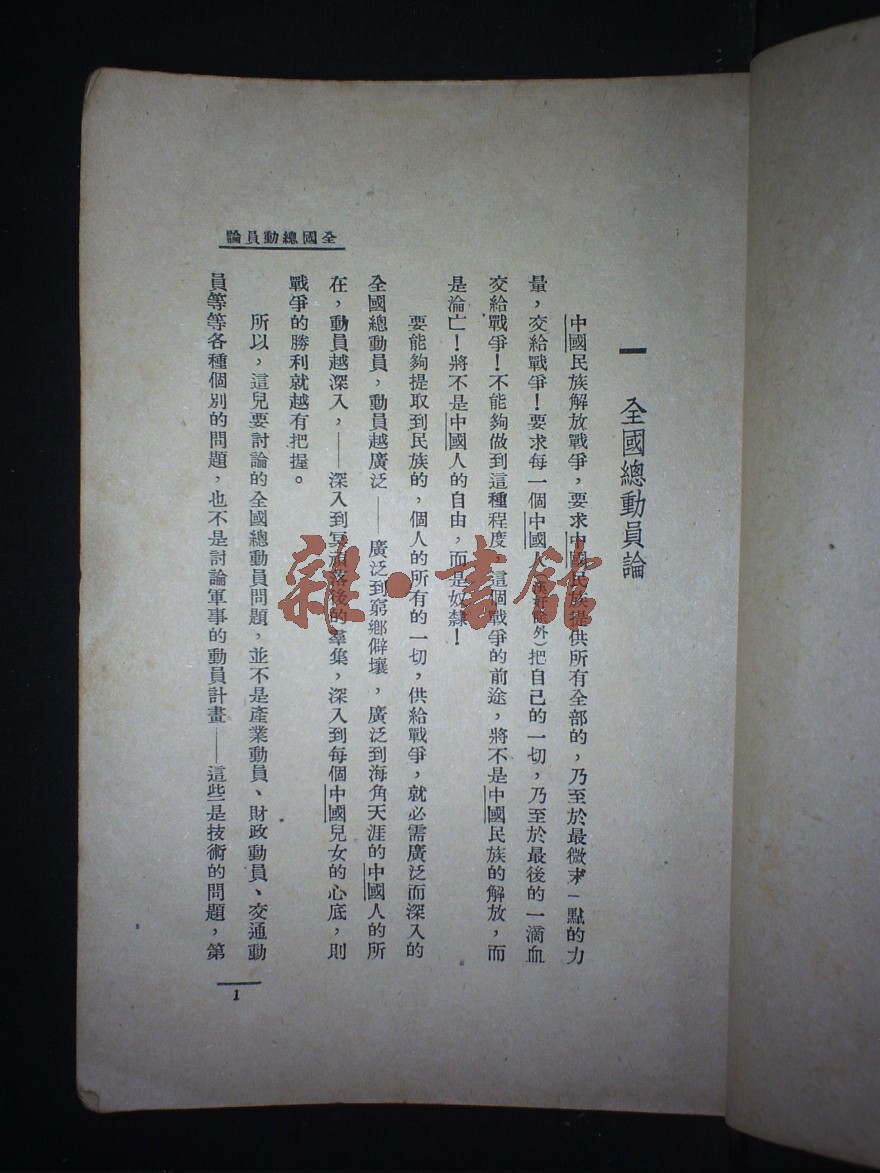 全國總動員論
一　全國總動員論
中國民族解放戰爭，要求中國民族提供所有全部的，乃至於最微末一點的力
量，交給戰爭！要求每一個中國人（漢奸除外）把自己的一切，乃至於最後的一滴血
交給戰爭！不能夠做到這種程度，這個戰爭的前途，將不是中國民族的解放，而
是淪亡！將不是中國人的自由，而是奴隸！
要能夠提取到民族的，個人的所有的一切，供給戰爭，就必需廣泛而深入的
全國總動員，動員越廣泛——廣泛到窮鄉僻壤，廣泛到海角天涯的中國人的所
在，動員越深入，——深入到冥頑落後的羣集，深入到每個中國兒女的心底，則
戰爭的勝利就越有把握。
所以，這兒要討論的全國總動員問題，並不是產業動員、財政動員、交通動
員等等各種個別的問題，也不是討論軍事的動員計畫——這些是技術的問題，第
1
雜·書館